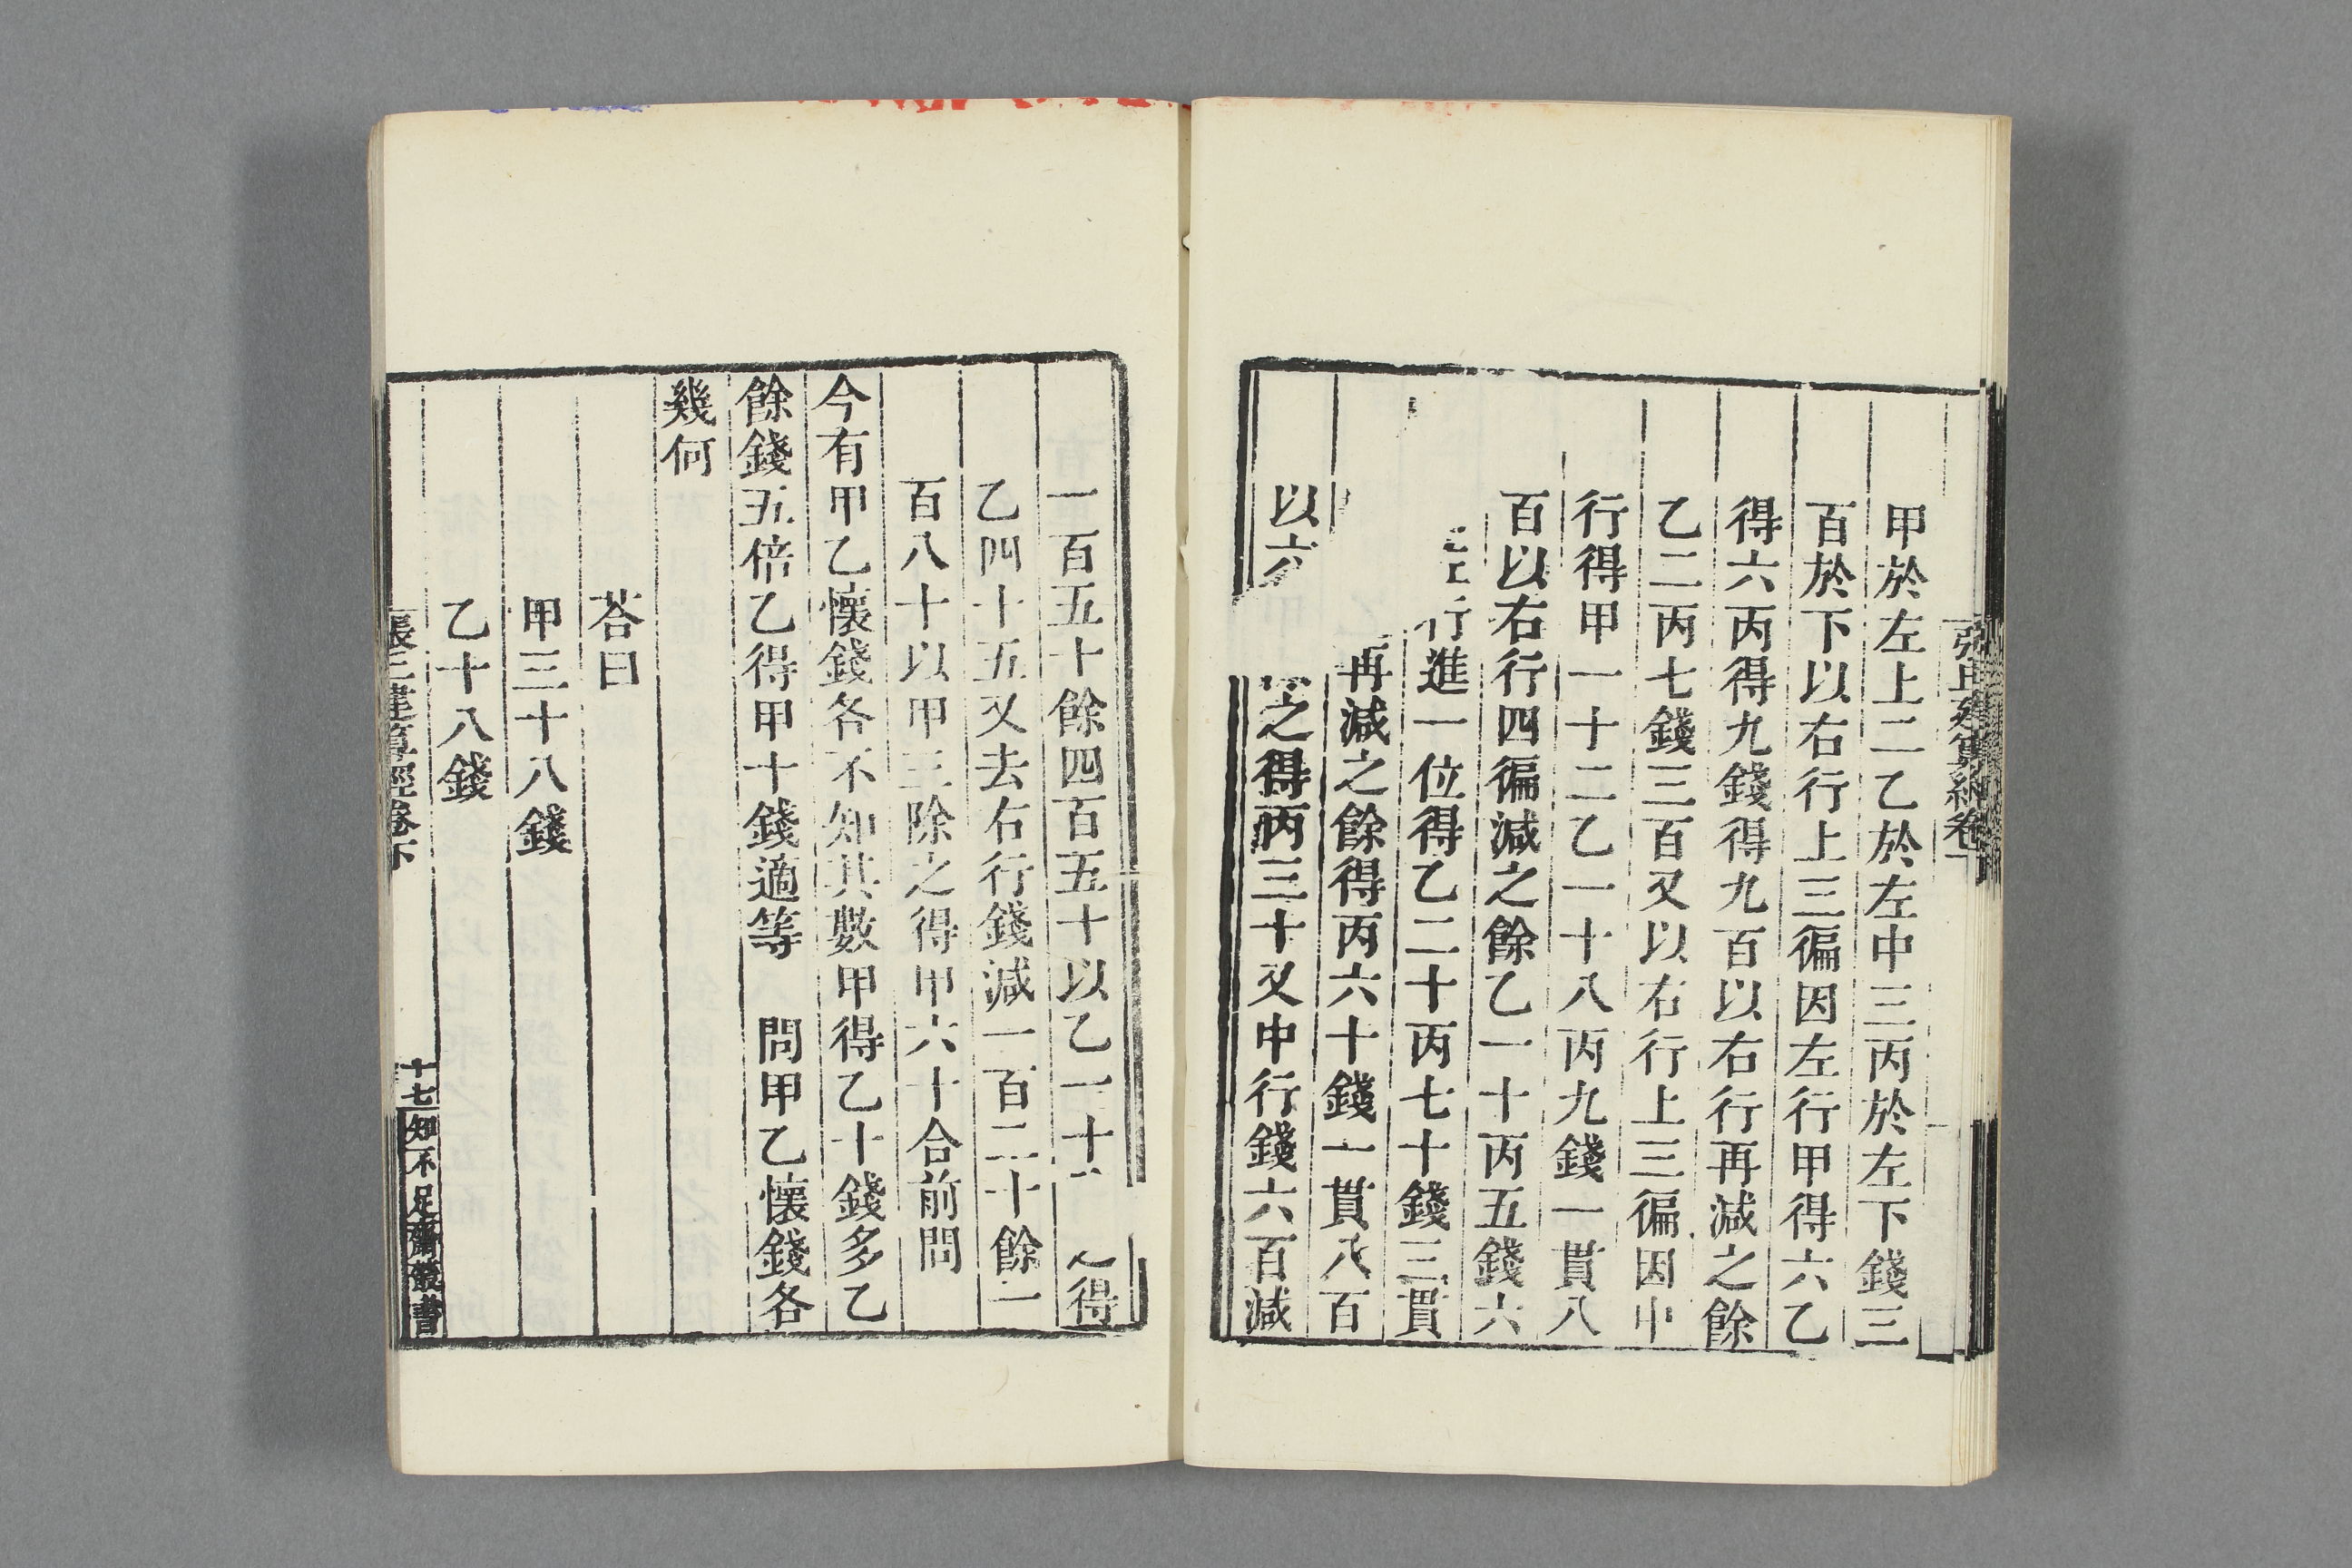 甲於左上二乙於左中三丙於左下錢三
百於下以右行上三徧因左行甲得六乙
得六丙得九錢得九百以右行再減之餘
乙二丙七錢三百又以右行上三徧因中
行得甲一十二乙一十八丙九錢一貫八
百以右行四徧減之餘乙一十丙五錢六
行進一位得乙二十丙七十錢三貫
再減之餘得丙六十錢一貫八百
以六
之得丙三十又中行錢六百減
一百五十餘四百五十以乙一十
得
乙四十五又去右行錢減一百二十餘一
百八十以甲三除之得甲六十合前問
今有甲乙懷錢各不知其數甲得乙十錢多乙
餘錢五倍乙得甲十錢適等 問甲乙懷錢各
幾何
荅曰
甲三十八錢
乙十八錢
張丘建算經卷下
十七 知不足齋叢書